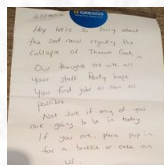 Hey We're so sorry about
the sad news regarding the
Collapse of Thomas Cook.
Our thoughts are with all
your staff. Really hope
you find jobs as soon as
possible.
Not sure if any of you
are going to be in today
If you are, please pop in
for a brekkie or cake on
us